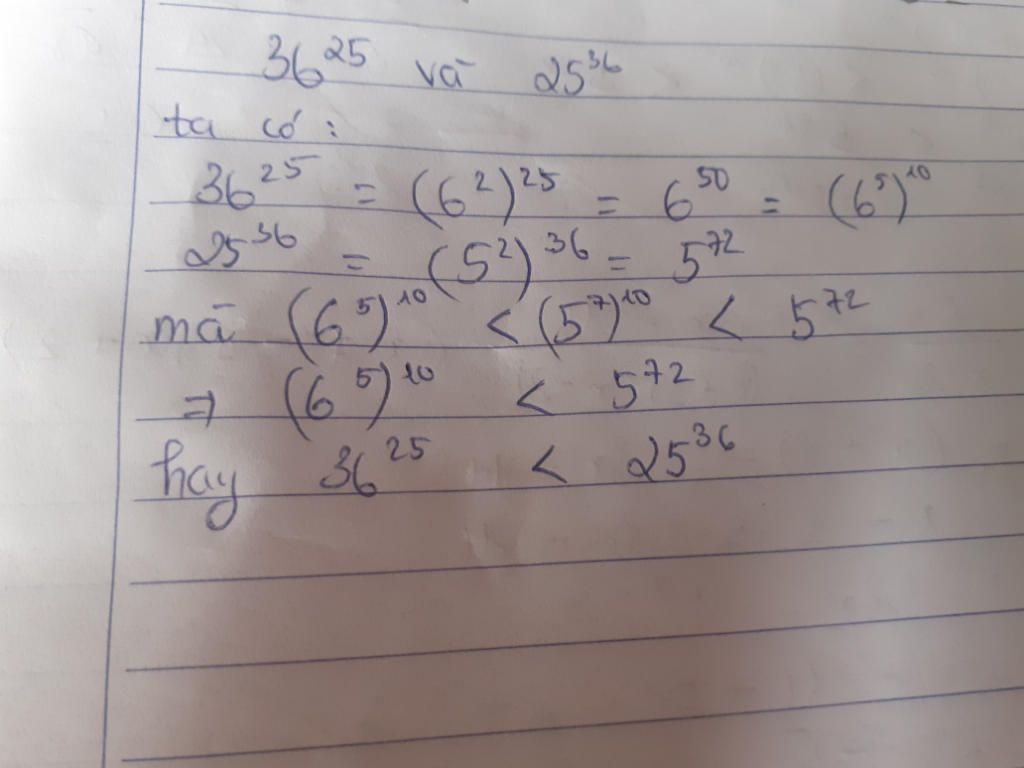 36^25 và 25^36
ta có:
36^25 = (6^2)^25 = 6^50 = (6^5)^10
25^36 = (5^2)^36 = 5^72
mà (6^5)^10 < (5^7)^10 < 5^72
⇒ (6^5)^10 < 5^72
hay 36^25 < 25^36